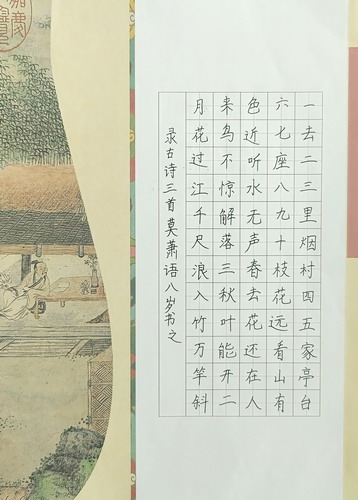 一去二三里烟村四五家亭台
六七座八九十枝花远看山有
色近听水无声春去花还在人
来鸟不惊解落三秋叶能开二
月花过江千尺浪入竹万竿斜
录古诗三首莫萧语八岁书之